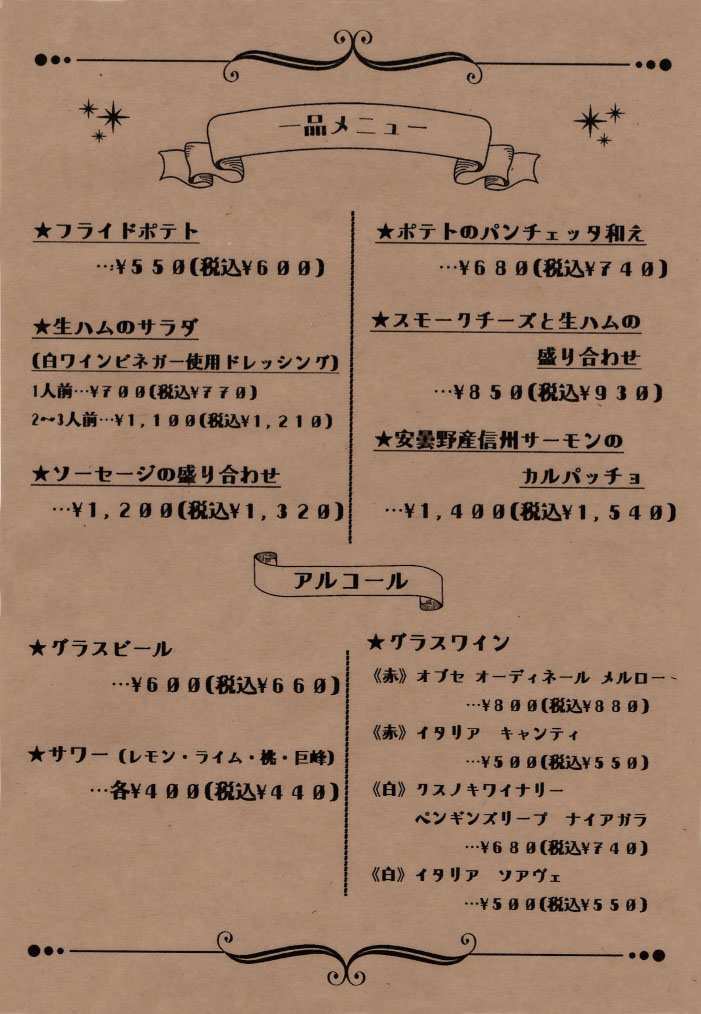 一品メニュー
★フライドポテト
…¥550(税込¥600)
★生ハムのサラダ
(白ワインビネガー使用ドレッシング)
1人前…¥700(税込¥770)
2〜3人前…¥1,100(税込¥1,210)
★ソーセージの盛り合わせ
…¥1,200(税込¥1,320)
★ポテトのパンチェッタ和え
…¥680(税込¥740)
★スモークチーズと生ハムの
盛り合わせ
…¥850(税込¥930)
★安曇野産信州サーモンの
カルパッチョ
…¥1,400(税込¥1,540)
アルコール
★グラスビール
…¥600(税込¥660)
★サワー(レモン・ライム・桃・巨峰)
…各¥400(税込¥440)
★グラスワイン
《赤》オブセ オーディネール メルロー
…¥800(税込¥880)
《赤》イタリア キャンティ
…¥500(税込¥550)
《白》クスノキワイナリー
ペンギンズリープ ナイアガラ
…¥680(税込¥740)
《白》イタリア ソアヴェ
…¥500(税込¥550)